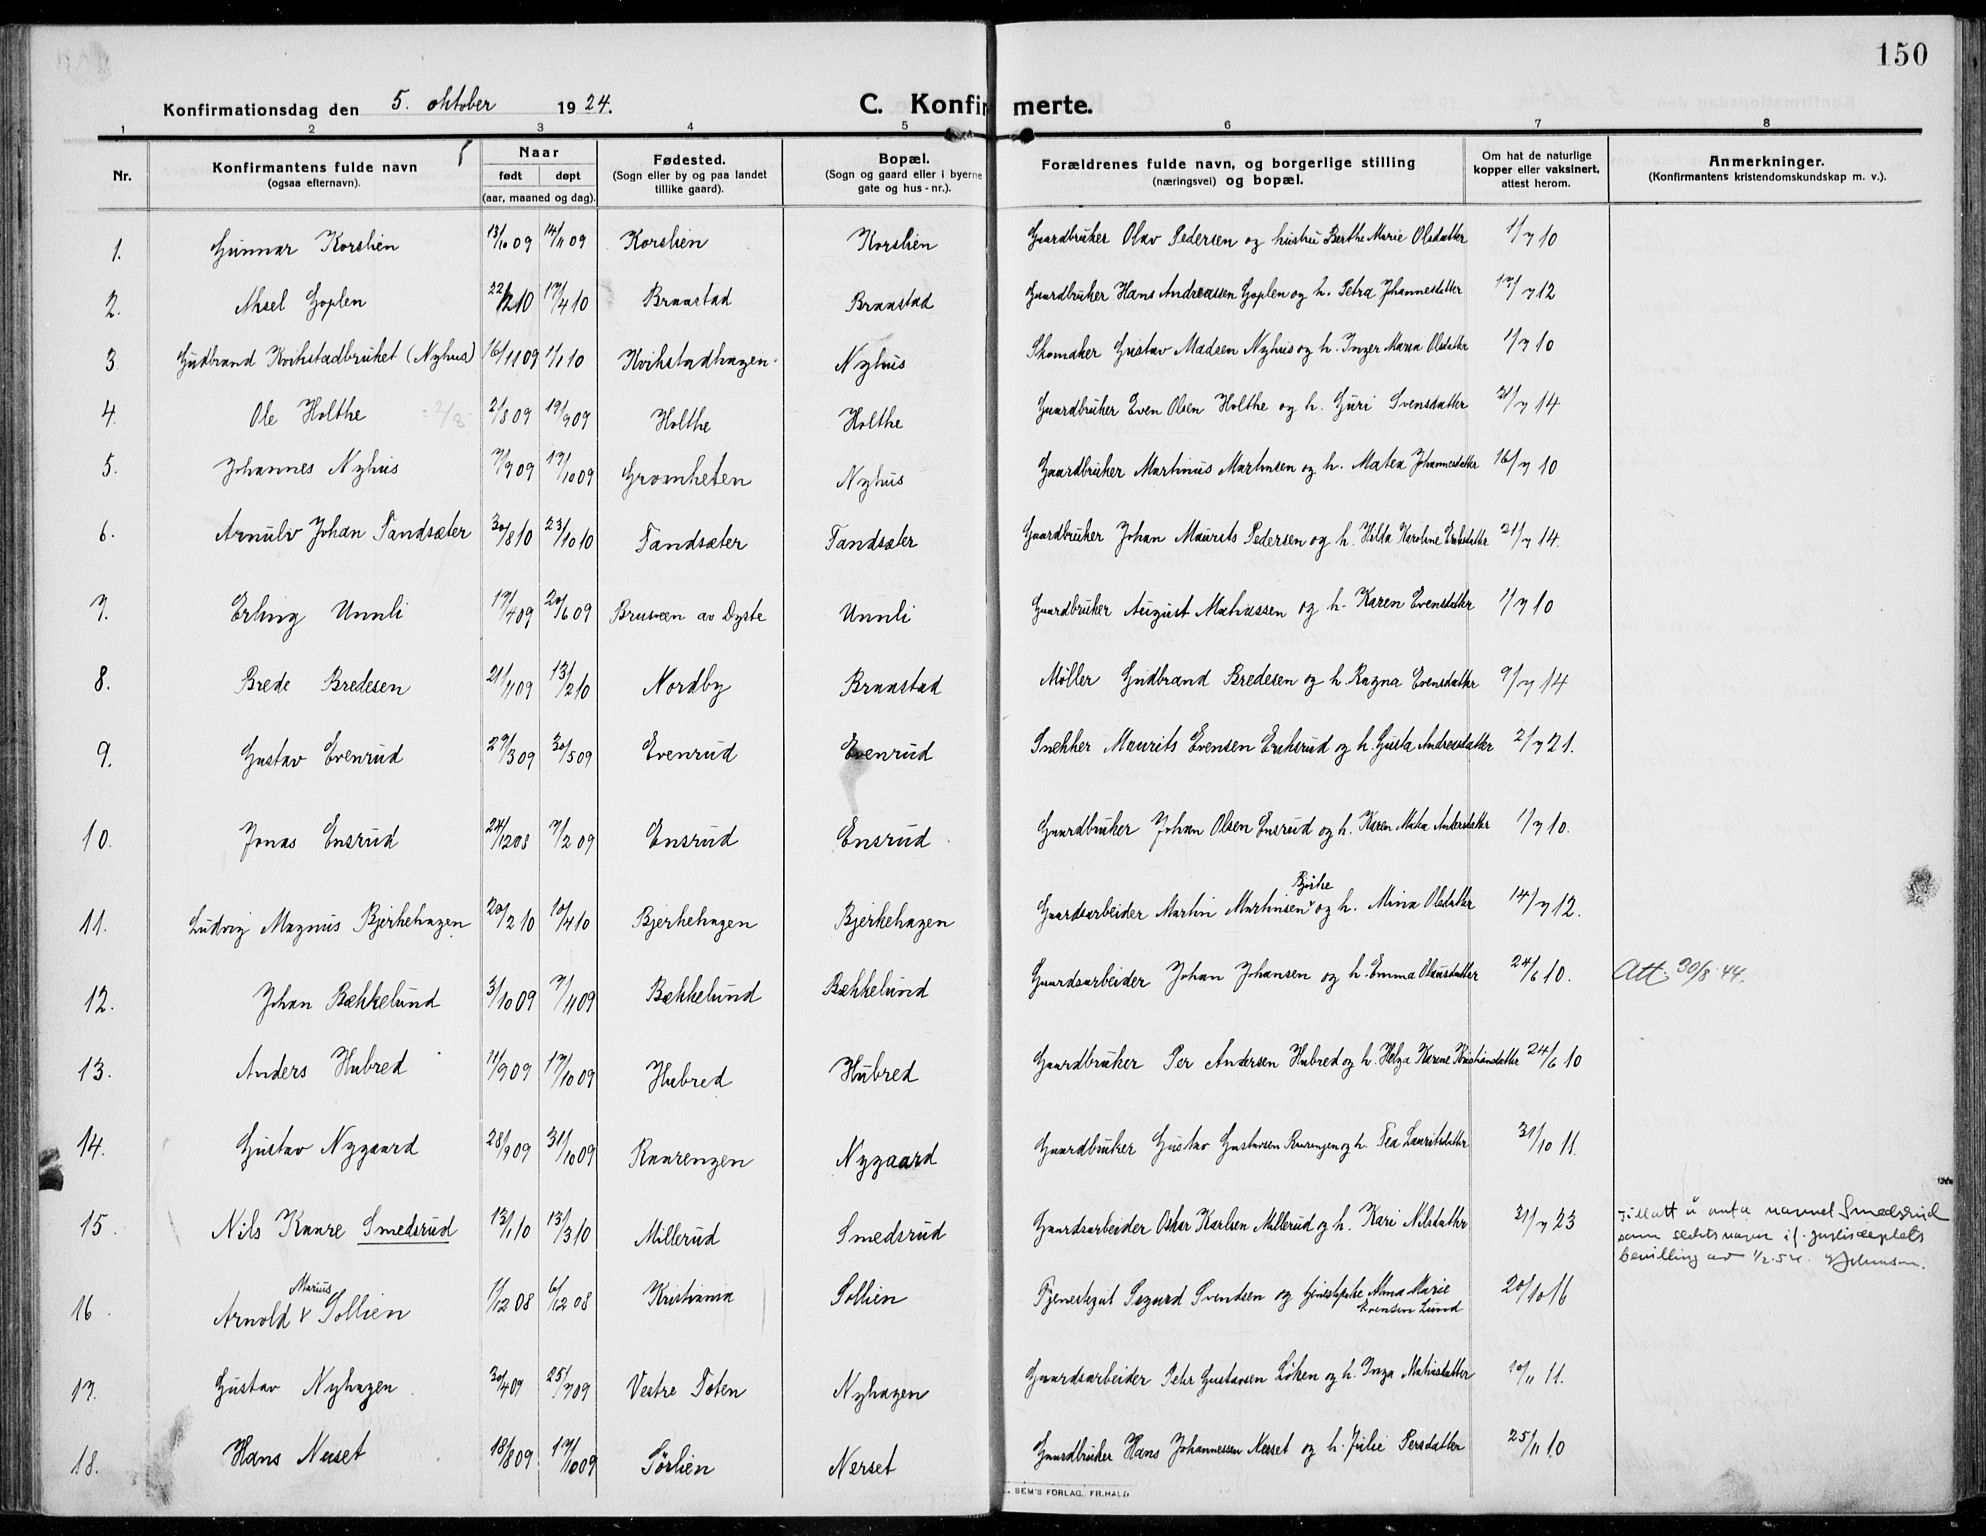 150
Konfirmationsdag den 5. oktober 1924.
C. Konfirmerte.
1 2 3 4 5 6 7 8
Nr.
Konfirmantens fulde navn
(ogsaa efternavn).
Naar
født døpt
(aar, maaned og dag).
Fødested.
(Sogn eller by og paa landet
tillike gaard).
Bopæl.
(Sogn og gaard eller i byerne
gate og hus-nr.).
Forældrenes fulde navn, og borgerlige stilling
(næringsvei) og bopæl.
Om hat de naturlige
kopper eller vaksinert,
attest herom.
Anmerkninger.
(Konfirmantens kristendomskundskap m. v.).
1. Gunnar Korslien 13/10 09 14/11 09 Korslien Korslien Gaardbruker Olav Pedersen og hustru Berthe Marie Olsdatter 1/7 10
2. Aksel Goplen 22/2 10 17/4 10 Braastad Braastad Gaardbruker Hans Andreassen Goplen og h. Petra Johannesdatter 17/7 12
3 Gudbrand Kvikstadbruket (Nyhus) 16/11 09 1/1 10 Kvikstadhagen Nyhus Skomaker Gustav Madsen Nyhus og h. Inger Marea Olsdatter 1/7 10
4. Ole Holthe = 2/8 2/8 09 19/9 09 Holthe Holthe Gaardbruker Even Olsen Holthe og h. Guri Svensdatter 21/7 14
5. Johannes Nyhus 7/9 09 17/10 09 Gromheten Nyhus Gaardbruker Martinus Martinsen og h. Matea Johannesdatter 16/7 10
6. Arnulv Johan Tandsæter 30/8 10 23/10 10 Tandsæter Tandsæter Gaardbruker Johan Maurits Pedersen og h. Hilda Karoline Eriksdatter 21/7 14.
7. Erling Unnli 17/4 09 20/6 09 Brusveen av Dyste Unnli Gaardbruker August Mathiassen og h. Karen Evensdatter 1/7 10
8. Brede Bredesen 21/11 09 13/2 10 Nordby Braastad Møller Gudbrand Bredesen og h. Ragna Evensdatter 9/7 14
9. Gustav Evenrud 29/3 09 30/5 09 Evenrud Evenrud Snekker Maurits Evensen Eriksrud og h. Gusta Andreasdatter 2/7 21.
10. Jonas Ensrud 24/12 08 7/2 09 Ensrud Ensrud Gaardbruker Johan Olsen Ensrud og h. Karen Matea Andersdatter 1/7 10.
Bjirke
11. Ludvig Magnus Bjerkehagen 20/2 10 10/4 10 Bjerkehagen Bjerkehagen Gaardsarbeider Martin Martinsen og h. Mina Olsdatter 14/7 12.
12. Johan Bækkelund 3/10 09 7/11 09 Bækkelund Bækkelund Gaardsarbeider Johan Johansen og h. Emma Olausdatter 24/6 10. Att. 30/8 44.
13. Anders Hubred 11/9 09 17/10 09 Hubred Hubred Gaardbruker Per Andersen Hubred og h. Helga Karine Kristiansdatter 24/6 10
14. Gustav Nygaard 28/9 09 31/10 09 Raarengen Nygaard Gaardbruker Gustav Gustavsen Raarengen og h. Tea Lauritsdatter 31/10 11.
15. Nils Kaare Smedsrud 13/1 10 13/3 10 Millerud Smedsrud Gaardsarbeider Oskar Karlsen Millerud og h. Kari Nilsdatter 31/7 23 Tillatt å anta navnet Smedsrud
som slektsnavn if. justisdeptets
bevilling av 1/2.54.
Marius
16. Arnold Sollien 1/12 08 6/12 08 Kristiania Sollien Tjenestegut Sigurd Svendsen og tjenestepike Alma Marie
Evensen Lund 20/10 16
17. Gustav Nyhagen 30/4 09 25/7 09 Vestre Toten Nyhagen Gaardsarbeider Petr Gustavsen Løken og h. Inga Mathisdatter 10/11 11.
18. Hans Nerset 18/8 09 17/10 09 Sørlien Nerset Gaardbruker Hans Johannessen Nerset og h. Julie Persdatter 25/11 10.
SEM'S FORLAG, FR.HALD.